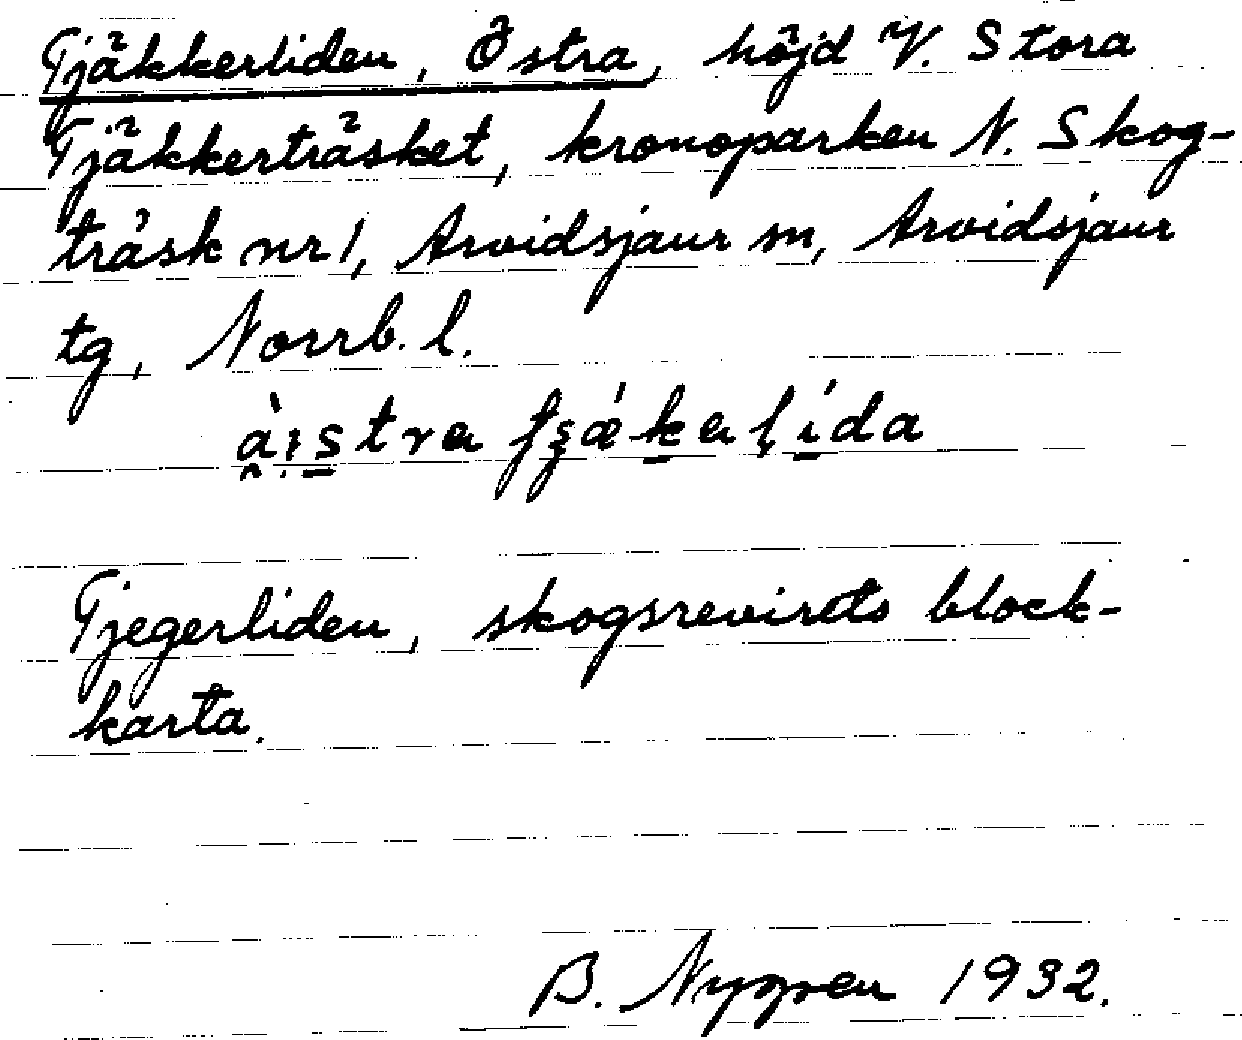 Tjäkkerliden, Östra, höjd V. Stora
Tjäkkerträsket, kronoparken N. Skog-
träsk nr 1, Arvidsjaur sn, Arvidsjaur
tg, Norrb. l.
Tjegerliden, skogsrevirets block-
karta.
B. Nygren 1932.